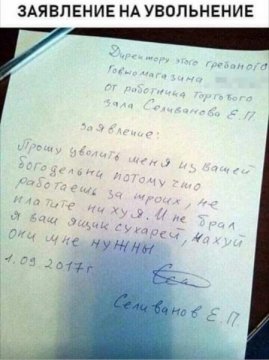 ЗАЯВЛЕНИЕ НА УВОЛЬНЕНИЕ
Директору этого гребаного
Говномагазина
от работника Торгового
зала Селиванова Е.П.
Заявление:
Прошу уволить меня из вашей
богодельни потому что
работаешь за троих, не
платите ни хуя. И не брал
я ваш ящик сухарей, нахуй
они мне нужны
1.09.2017г.
Селиванов Е.П.